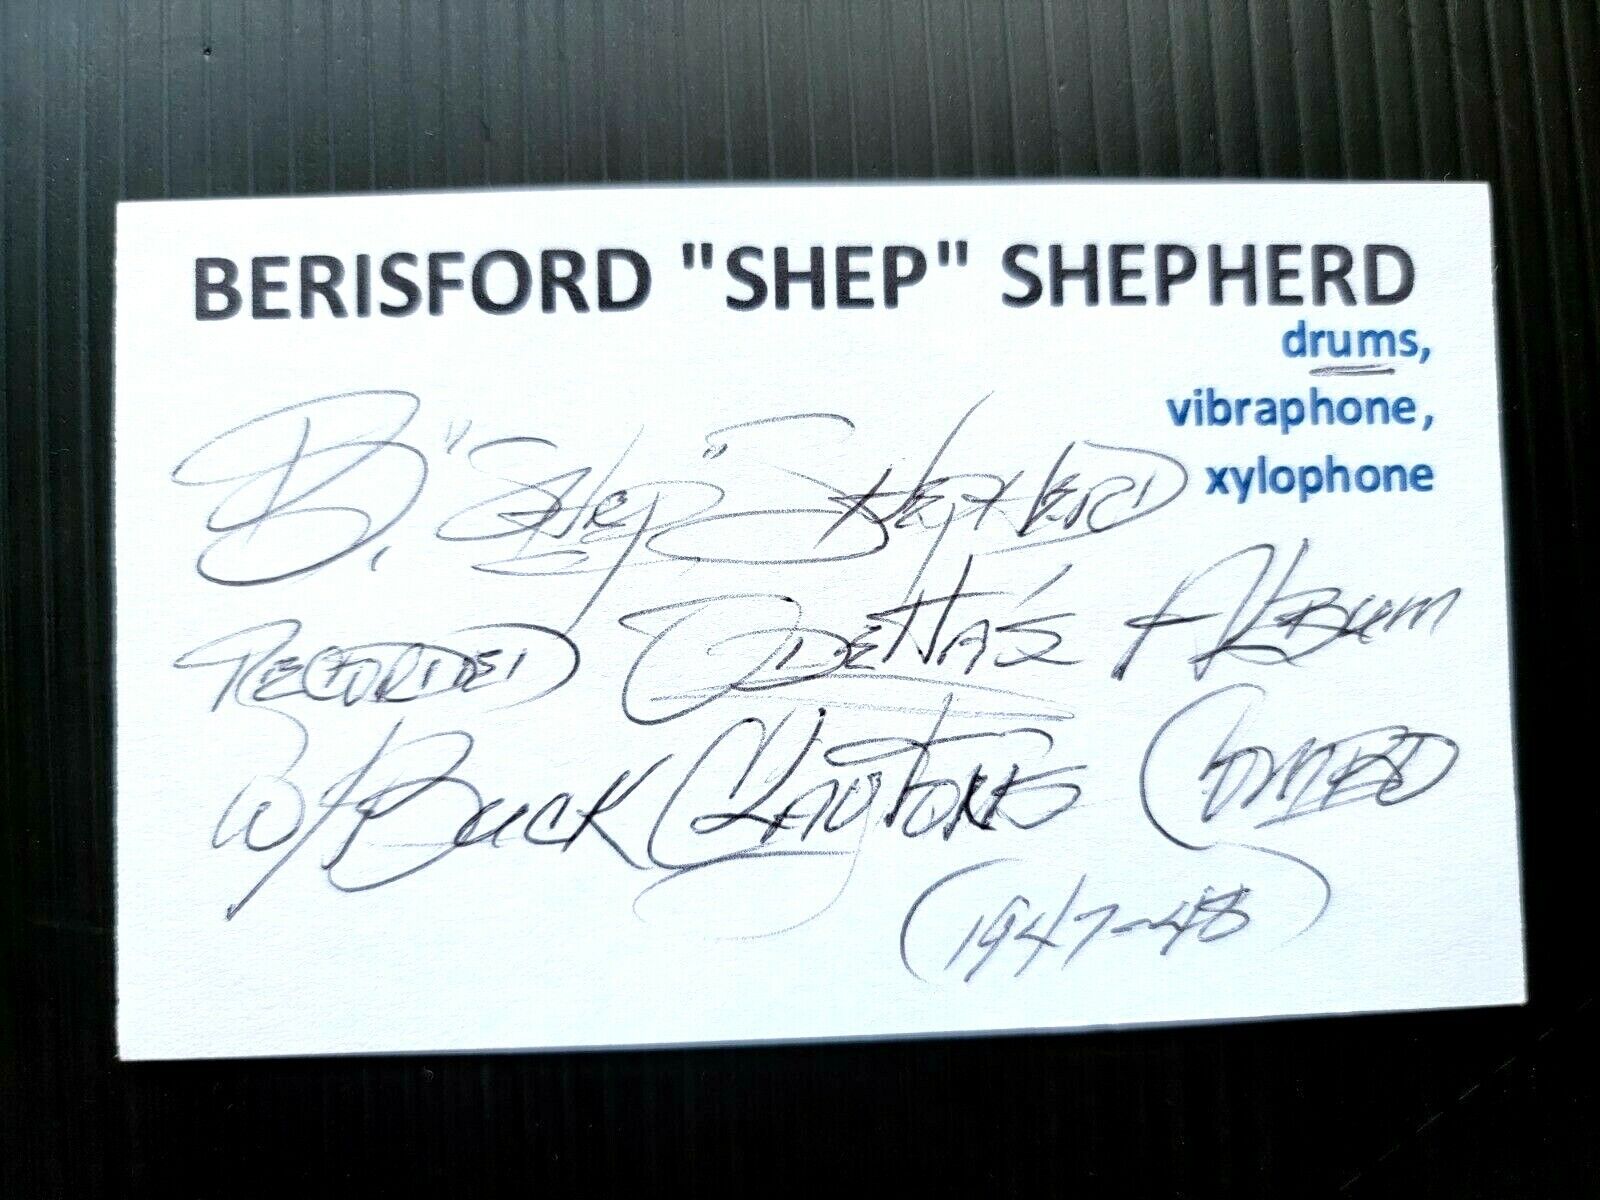 BERISFORD "SHEP" SHEPHERD
drums,
vibraphone,
xylophone
B. "Shep" Shepherd
Recorded Odetta's + Album
w/Buck Claytons Combo
(1947-48)